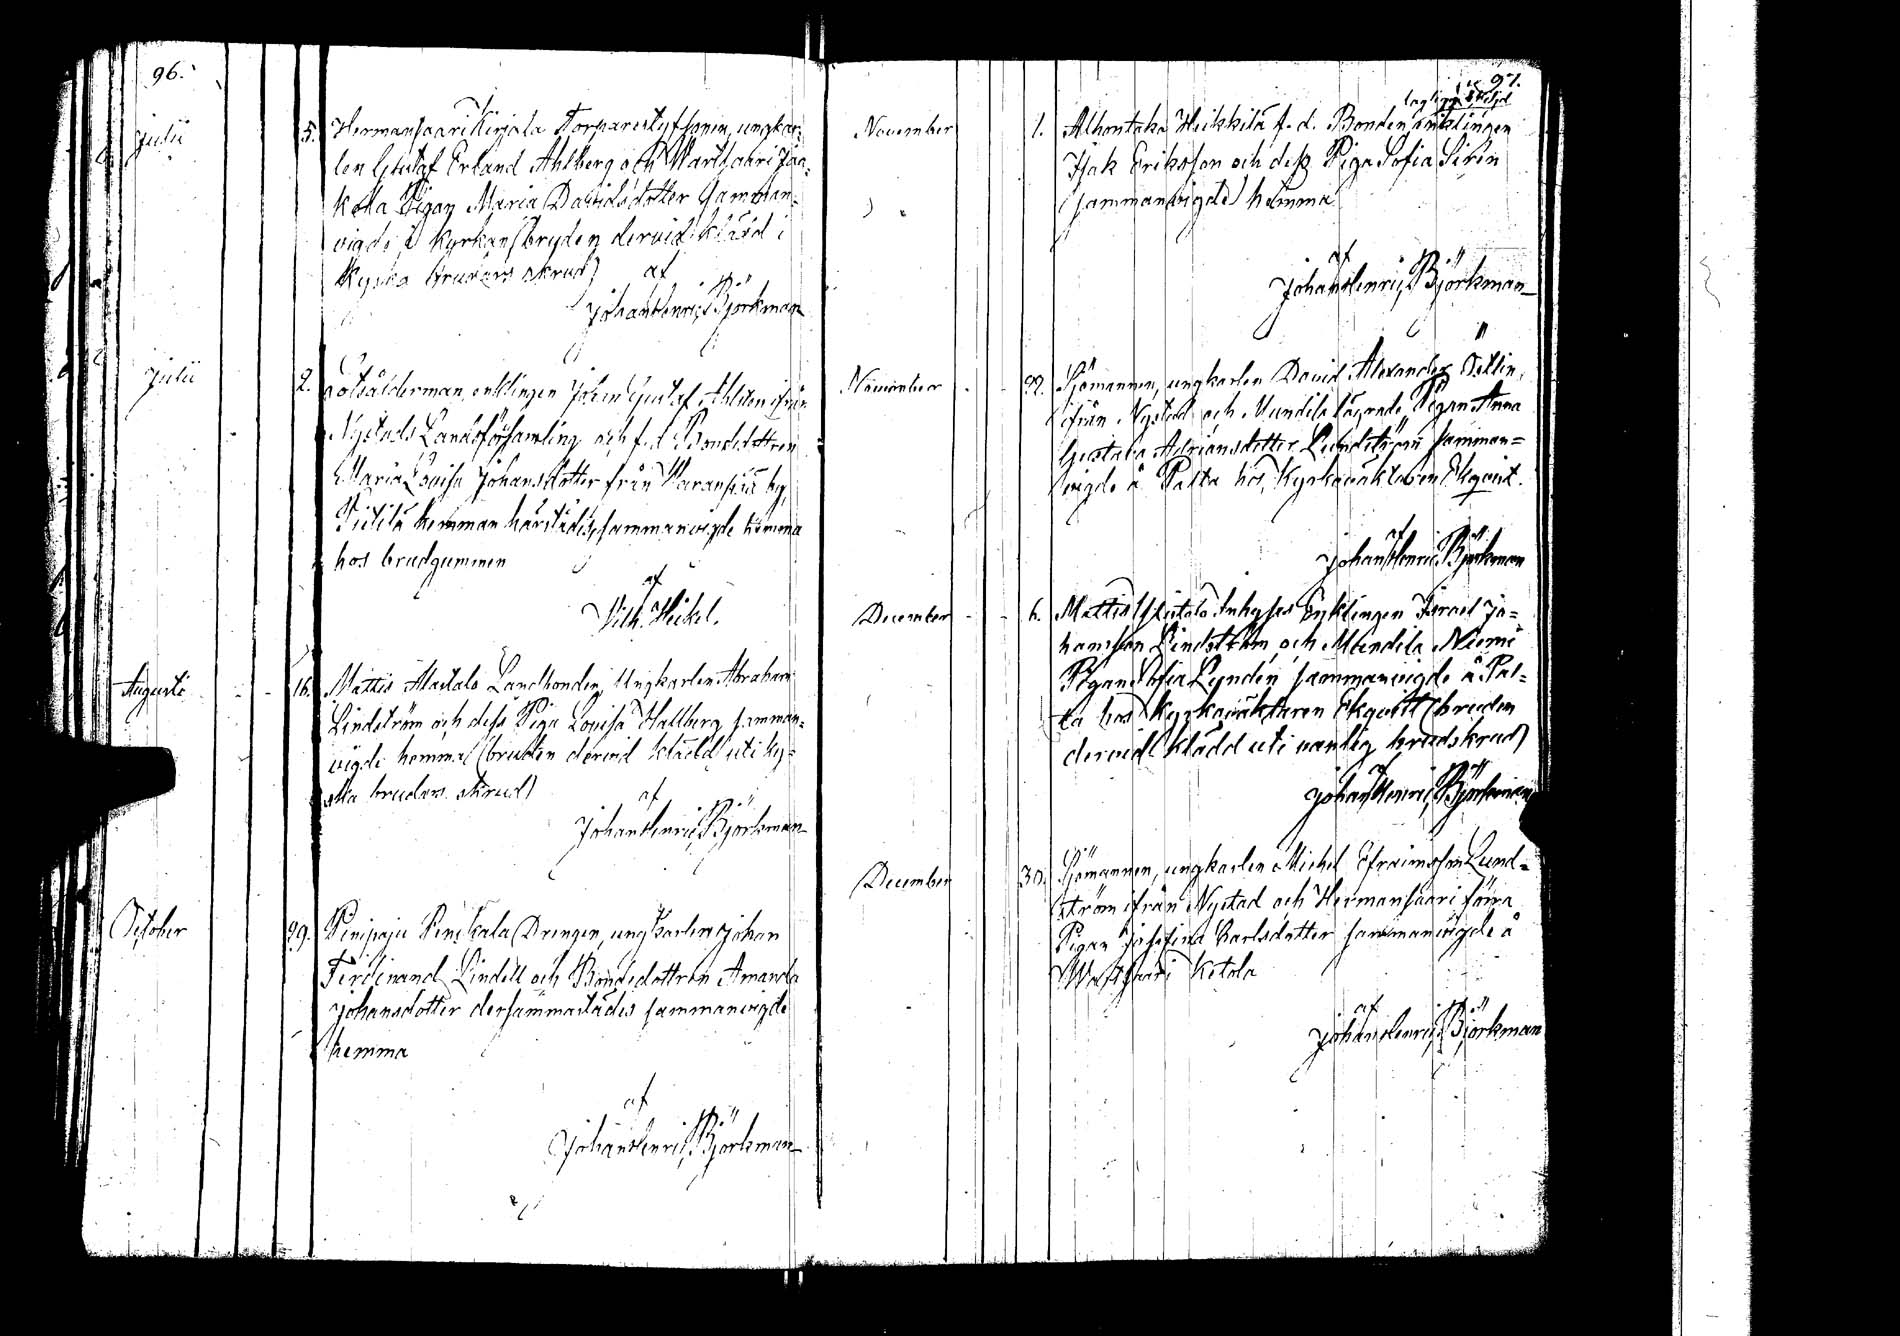 96.
Julii 5. Hermansaari Kirjala Torparestyfsonen, ungkar-
len Gustaf Erland Ahlberg och Wartsaari Jaa-
kola Pigan Maria Davidsdotter Samman-
vigde i kyrkan (bruden dervid klädd i
kyska bruders skrud) af
Johan Henric Björkman
Julii 2. Lotsålderman, enklingen Johan Gustaf Ahlsten ifrån
Nystads Landsförsamling och f.d. Bondedottren
Maria Lovisa Johansdotter från
hemman härstädes, sammanvigde hemma
hos brudgummen
af
Vilh. Heikel.
Augusti 16. Mattis Alastalo Landbonden, Ungkarlen Abraham
Lindström och dess Piga Lovisa Hallberg samman-
vigde hemma (bruden dervid klädd uti ky-
ska bruders skrud)
af
Johan Henric Björkman
October 29. Pinipaju Penskala Drengen, ungkarlen Johan
Ferdinand Lindell och Bondedottren Amanda
Johansdotter dersammastädes sammanvigde
hemma
af
Johan Henric Björkman
97.
November 1. Alhontaka Heikkilä f.d. Bonden enklingen
Isak Eriksson och dess Piga Sofia Sirén
sammanvigde hemma
af
Johan Henric Björkman
November 22. Sjömannen, ungkarlen David Alexander Östlin,
ifrån Nystad och Mundila Pigan Anna
Gustava Adriansdotter Lundström samman-
vigde å Palta hos Kyrkoväktaren Ekqvist.
af
Johan Henric Björkman
December 6. Mattis Inhyses Enklingen Israel Jo-
hansson Lindström och Mundila Niemi
Pigan Sofia Lyndén sammanvigde å Pal-
ta hos Kyrkoväktaren Ekqvist (bruden
dervid klädd uti vanlig brudskrud)
af
Johan Henric Björkman
December 30. Sjömannen, ungkarlen Michel Efraimsson Lund-
ström ifrån Nystad och Hermansaari förra
Pigan Josefina Carlsdotter sammanvigde å
Wartsaari Ketola
af
Johan Henric Björkman